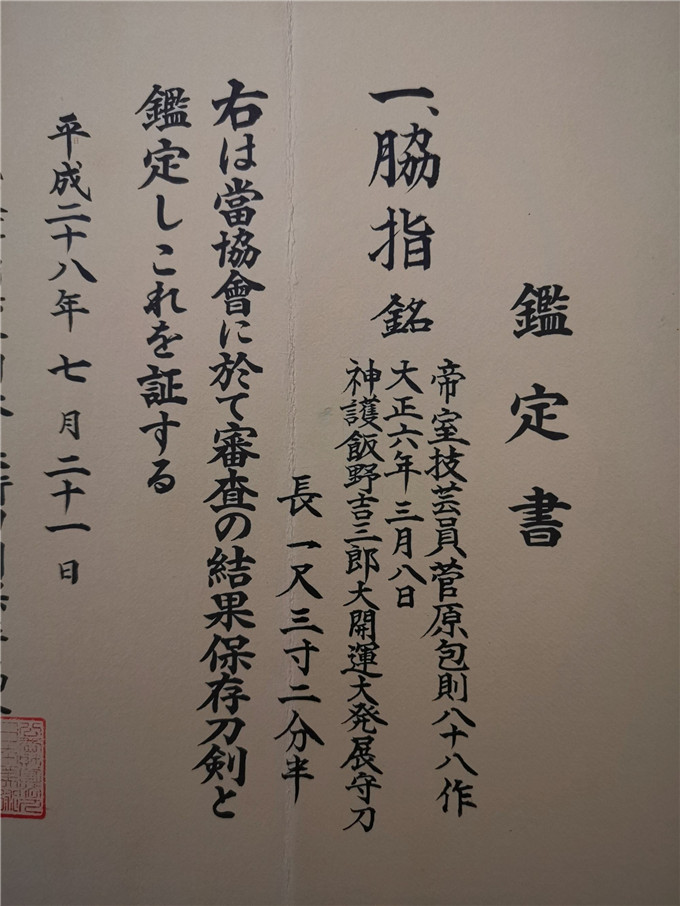 鑑定書
一、脇指 銘
帝室技芸員菅原包則八十八作
大正六年三月八日
神護飯野吉三郎大開運大発展守刀
長 一尺三寸二分半
右は當協會に於て審査の結果保存刀剣と
鑑定しこれを証する
平成二十八年七月二十一日